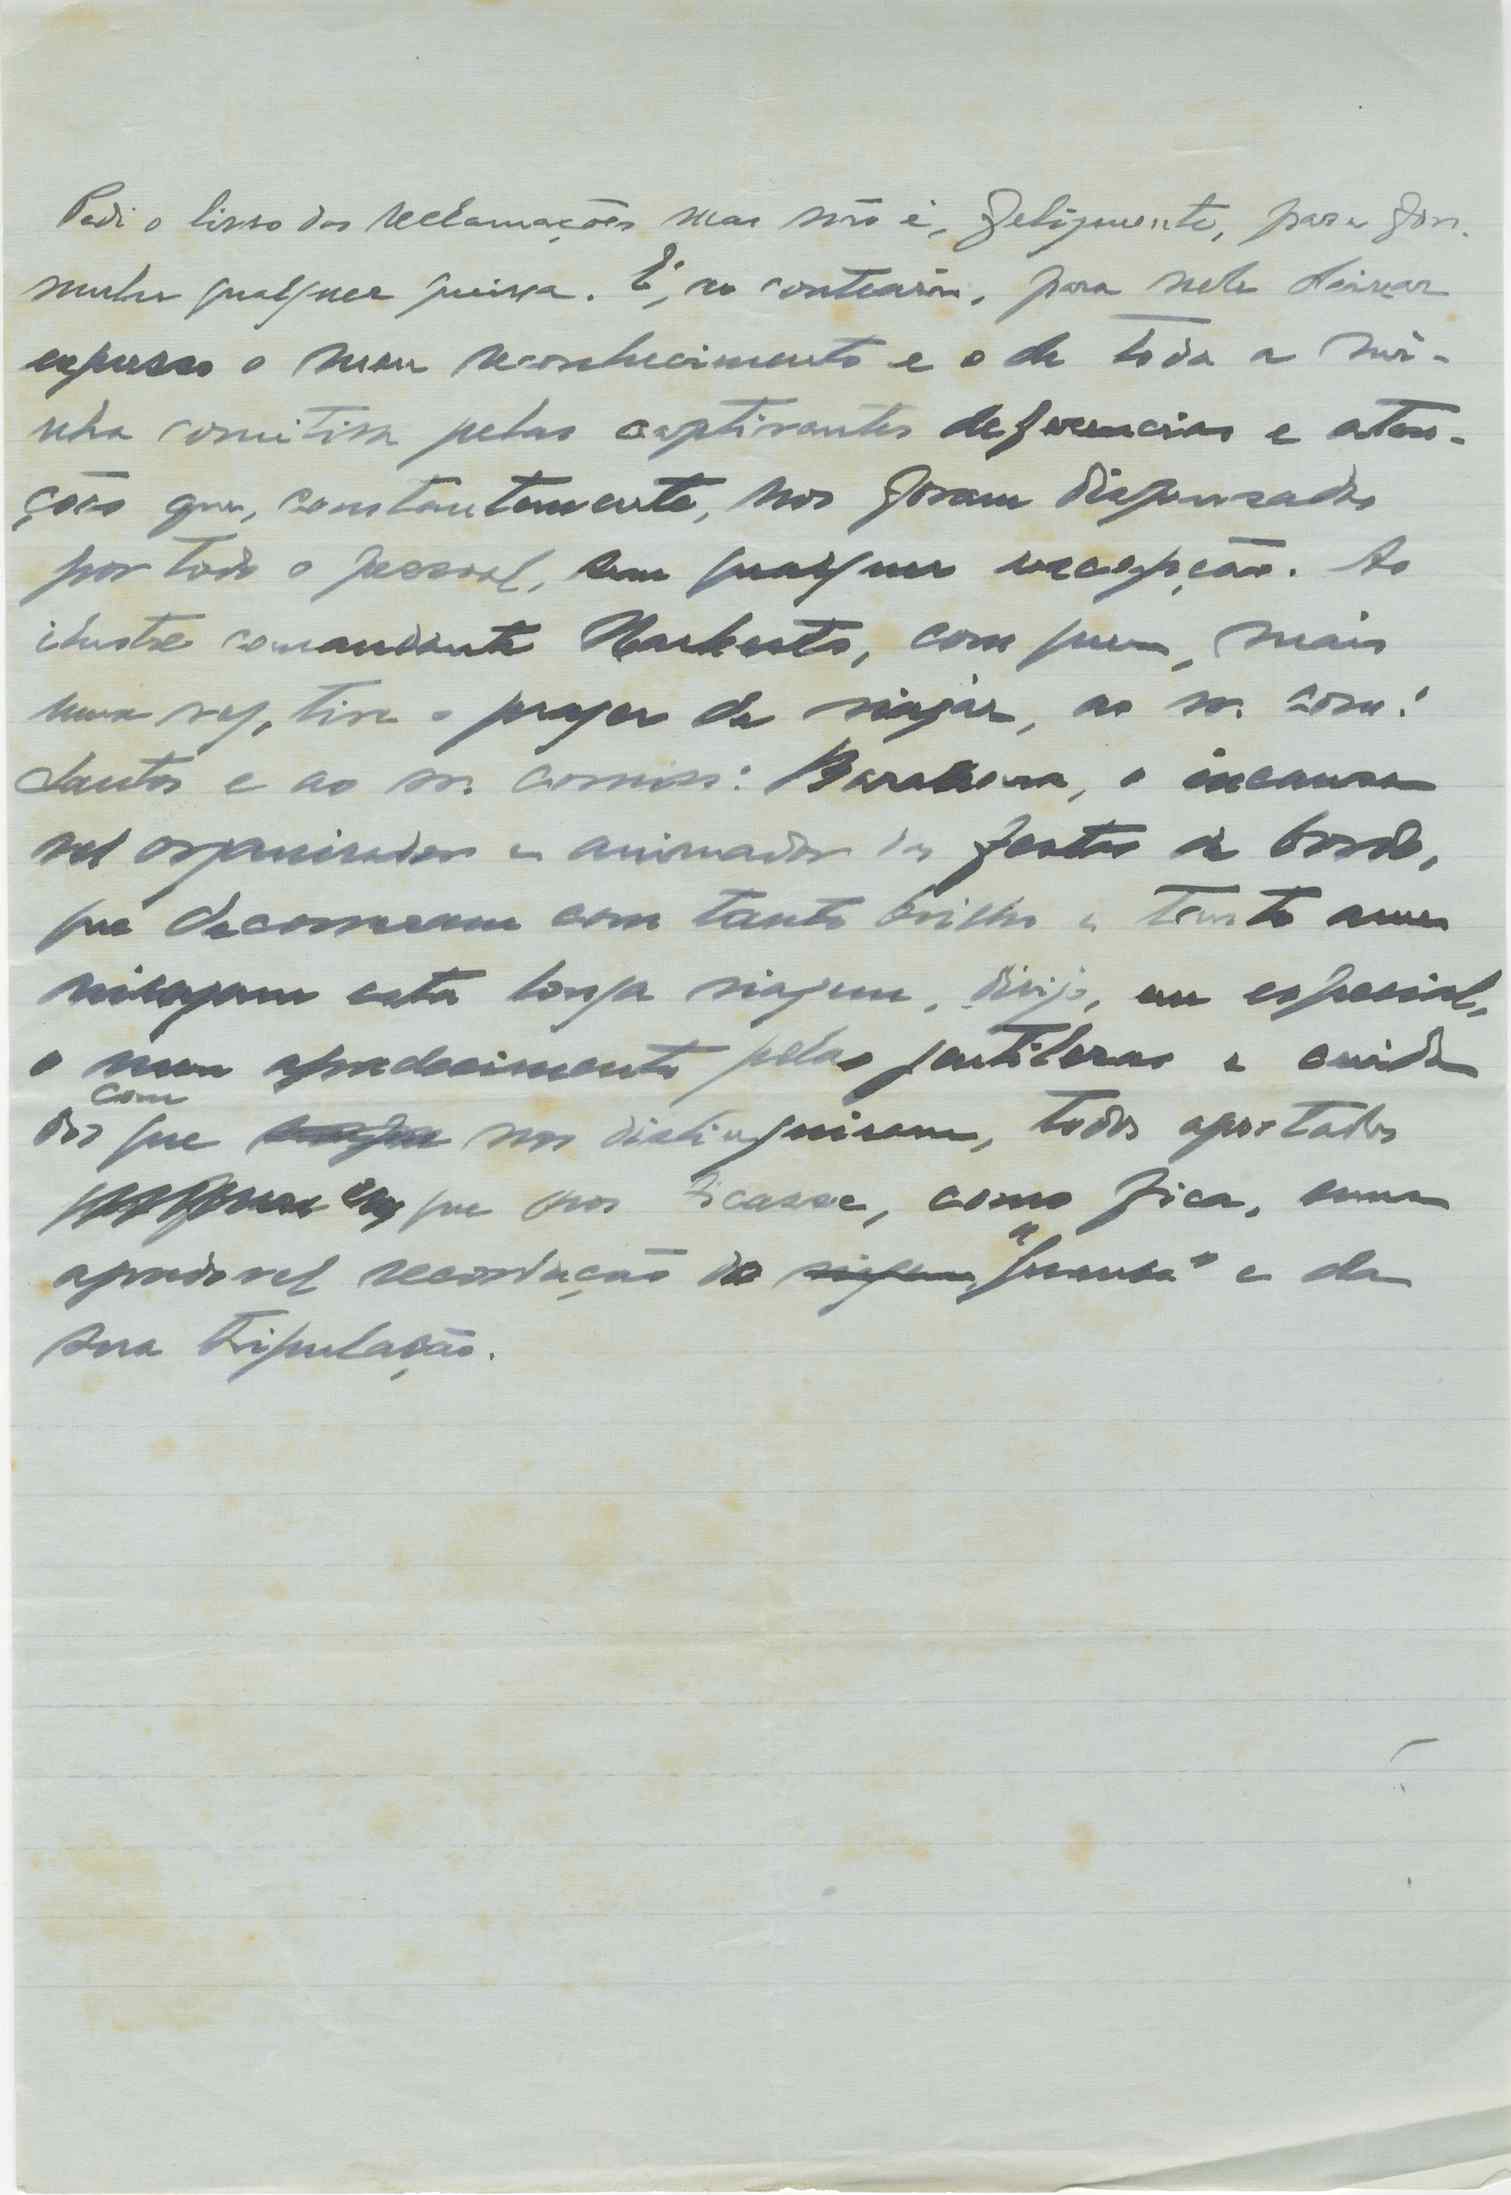 Pedi o livro das reclamações mas não é, felizmente, para for-
mular qualquer queixa. É, ao contrário, para nele deixar
expresso o meu reconhecimento e o de toda a mi-
nha comitiva pelas captivantes deferencias e aten-
ções que, constantemente, nos foram dispensadas
por todo o pessoal, sem qualquer excepção. Ao
ilustre comandante Harberts, com quem, mais
uma vez, tive o prazer de viajar, ao sr. com:
Santos e ao sr. comiss: o incansa
vel organisador e animador das festas de bordo,
que decorreram com tanto brilho e tanto ame
nisaram esta longa viagem, dirijo, em especial,
o meu agradecimento pelas gentilezas e cuida
dos com que nos distinguiram, todos apostados
em que nos ficasse, como fica, uma
agradavel recordação do viagem "Quanza" e da
sua tripulação.